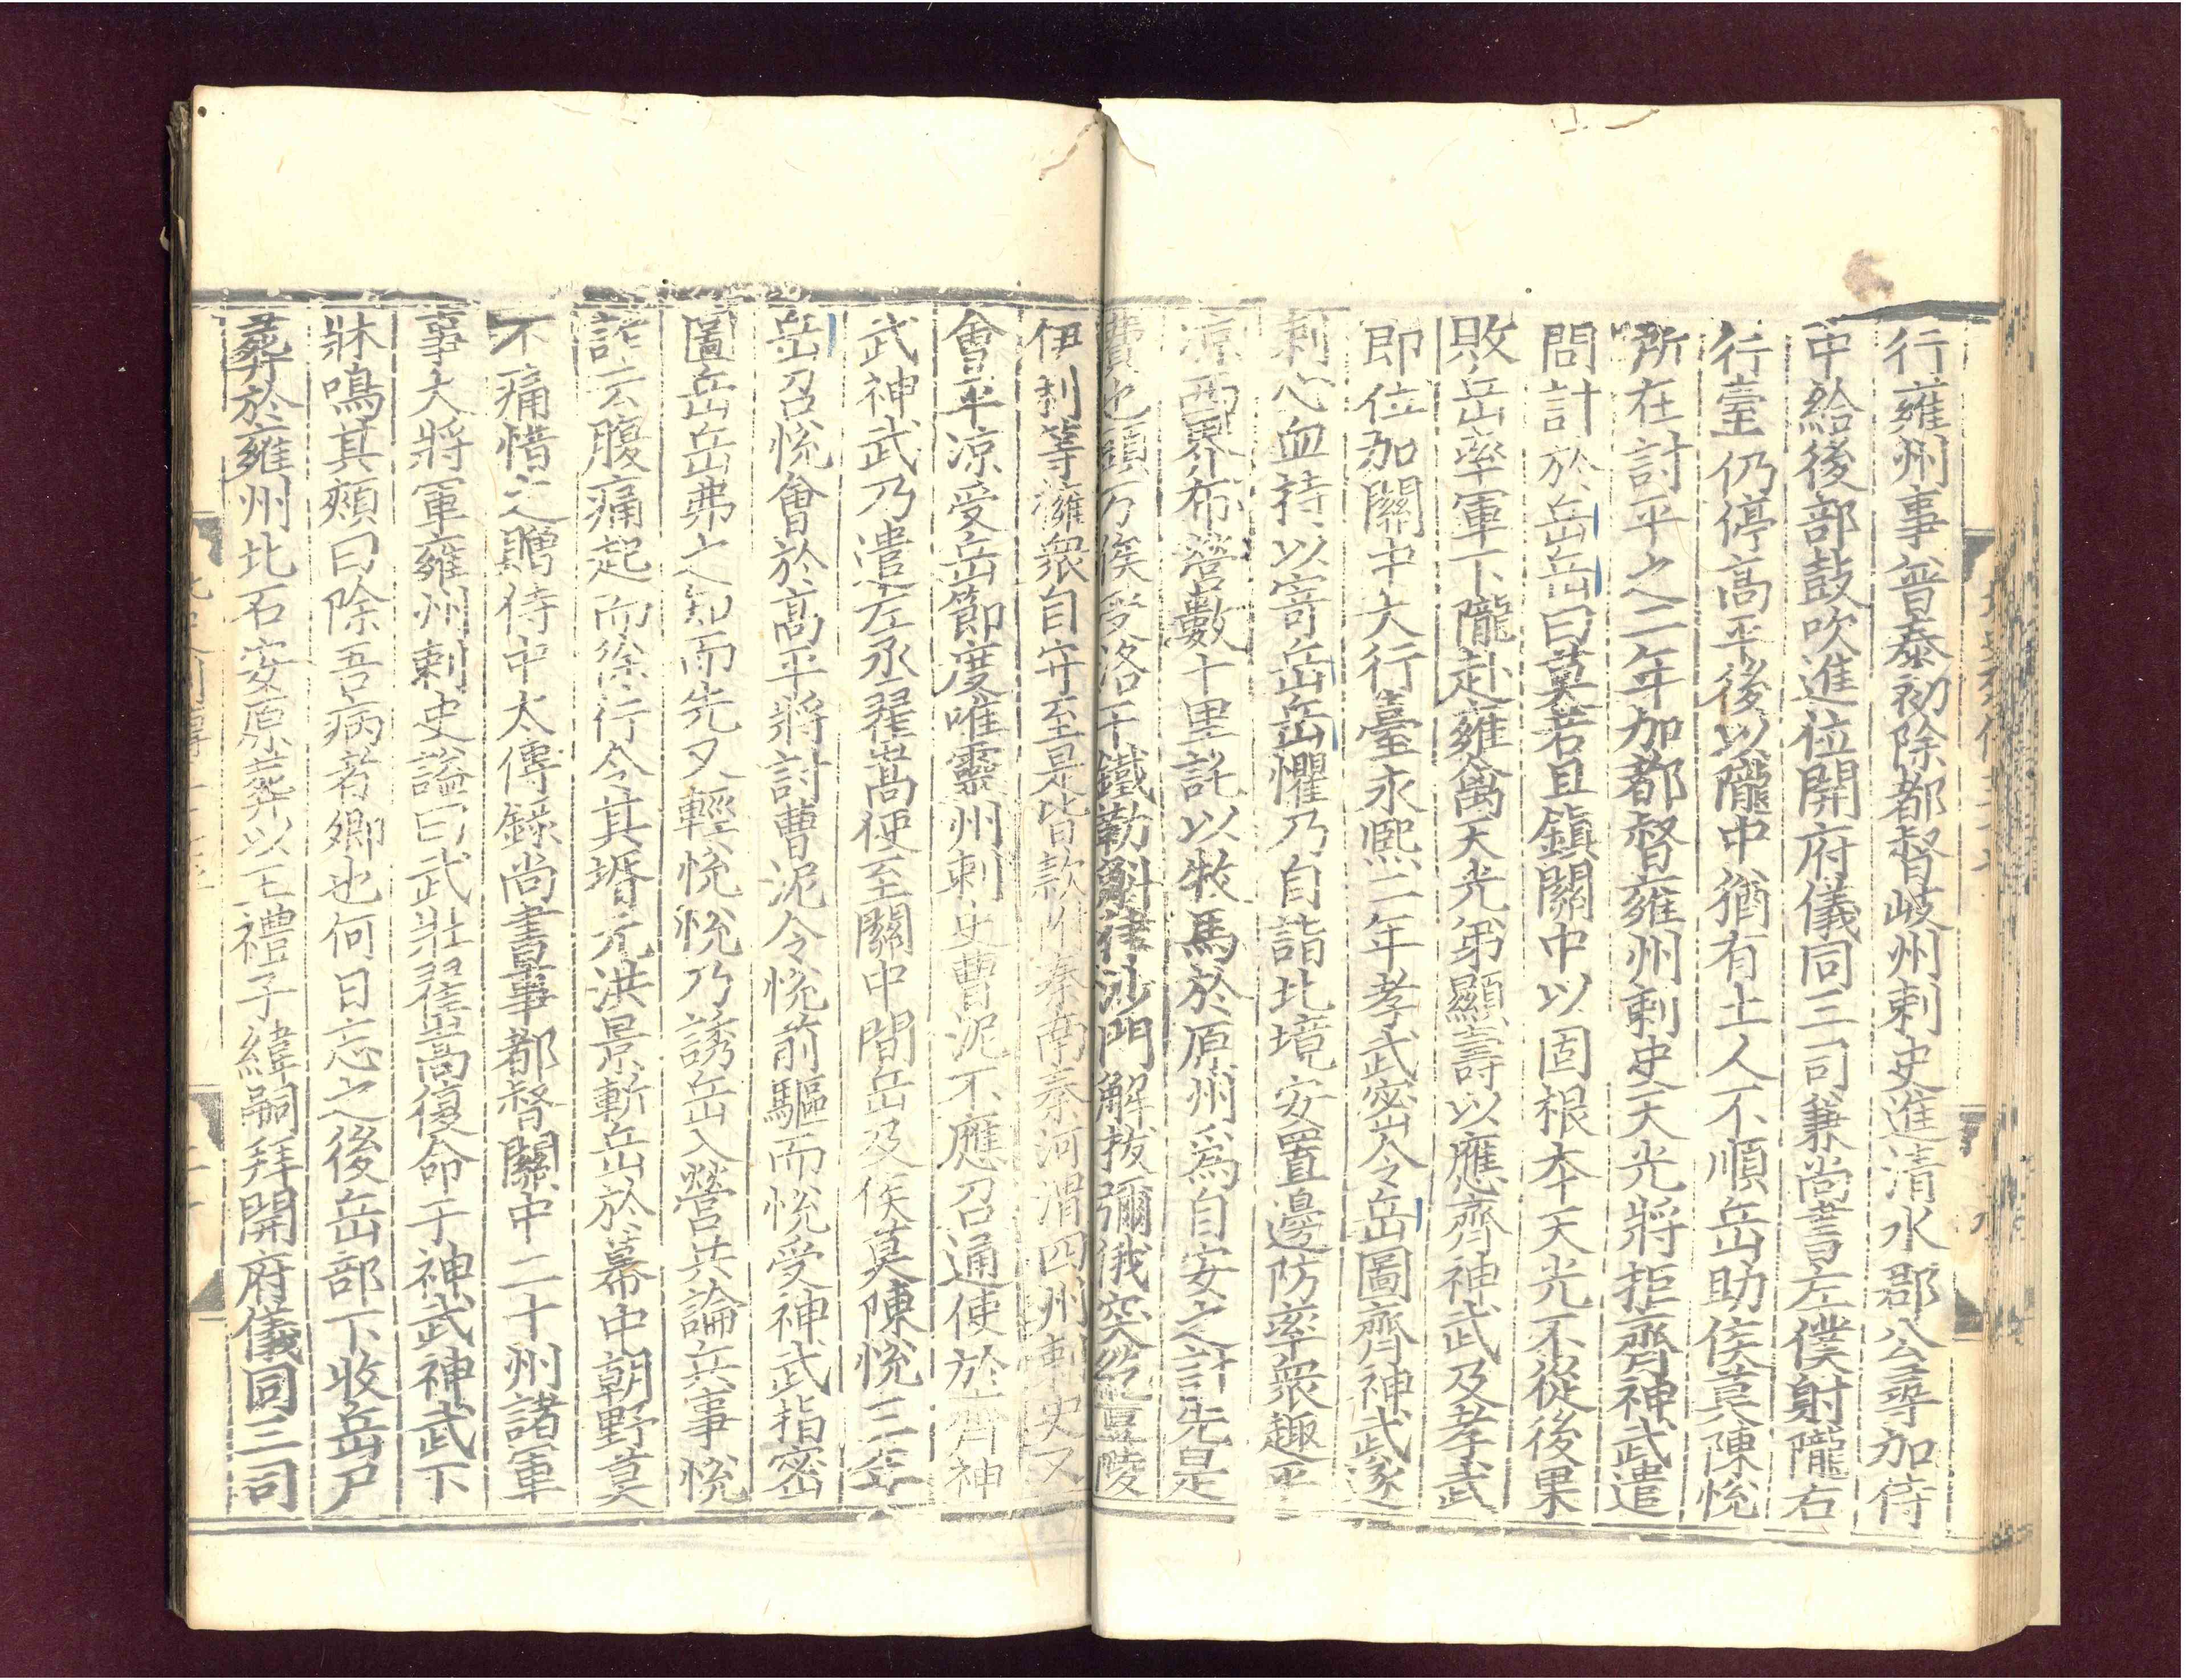 行雍州事普泰初除都督岐州刺史進清水郡公尋加侍
中給後部鼓吹進位開府儀同三司兼尚書左僕射隴右
行臺仍停高平後以隴中猶有土人不順岳助侯莫陳悅
所在討平之二年加都督雍州刺史天光將拒齊神武遣
問計於岳岳曰莫若且鎮關中以固根本天光不從後果
敗岳率軍下隴赴雍禽天光弟顯壽以應齊神武及孝武
即位加關中大行臺永熙二年孝武密令岳圖齊神武遂
刺心血持以寄岳岳懼乃自詣北境安置邊防率衆趣平
涼西界布營數十里託以牧馬於原州爲自安之計先是
費也頭万俟受洛干鐵勒斛律沙門解拔彌俄突紇豆陵
伊利等擁衆自守至是皆款附秦南秦河渭四州刺史又
會平涼受岳節度唯靈州刺史曹泥不應召通使於齊神
武神武乃遣左丞翟嵩使至關中間岳及侯莫陳悅三年
岳召悅會於高平將討曹泥令悅前驅而悅受神武指密
圖岳岳弗之知而先又輕悅悅乃誘岳入營共論兵事悅
詐云腹痛起而徐行令其壻元洪景斬岳於幕中朝野莫
不痛惜之贈侍中太傅錄尚書事都督關中二十州諸軍
事大將軍雍州刺史諡曰武壯翟嵩復命于神武神武下
牀鳴其頰曰除吾病者卿也何日忘之後岳部下收岳尸
葬於雍州北石安原葬以王禮子緯嗣拜開府儀同三司